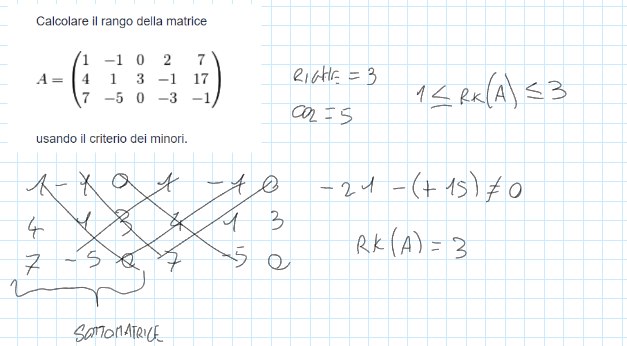 Calcolare il rango della matrice
A = ( 1 −1 0 2 7
4 1 3 −1 17
7 −5 0 −3 −1 )
usando il criterio dei minori.
RIGHE = 3
COL = 5
1 ≤ RK(A) ≤ 3
1 -1 0 1 -1 0
4 1 3 4 1 3
7 -5 0 7 -5 0
SOTTOMATRICE
-21 -(+15) ≠ 0
RK(A) = 3